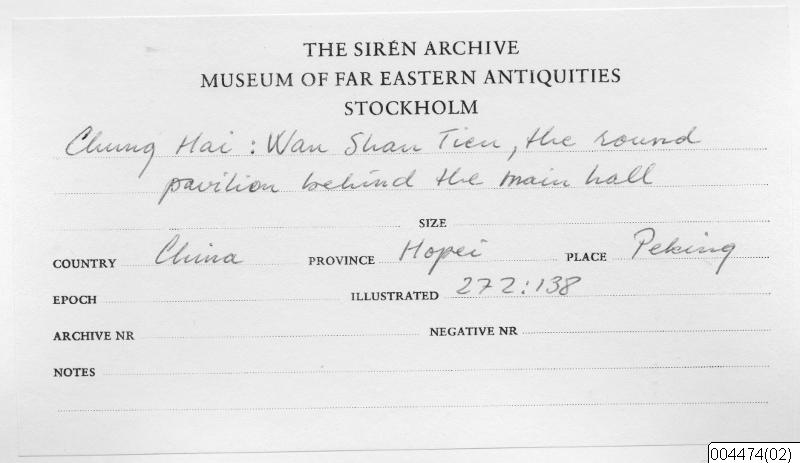 THE SIRÉN ARCHIVE
MUSEUM OF FAR EASTERN ANTIQUITIES
STOCKHOLM
Chung Hai : Wan Shan Tien, the round
pavilion behind the main hall
SIZE
COUNTRY China PROVINCE Hopei PLACE Peking
EPOCH ILLUSTRATED 272:138
ARCHIVE NR NEGATIVE NR
NOTES
004474(02)